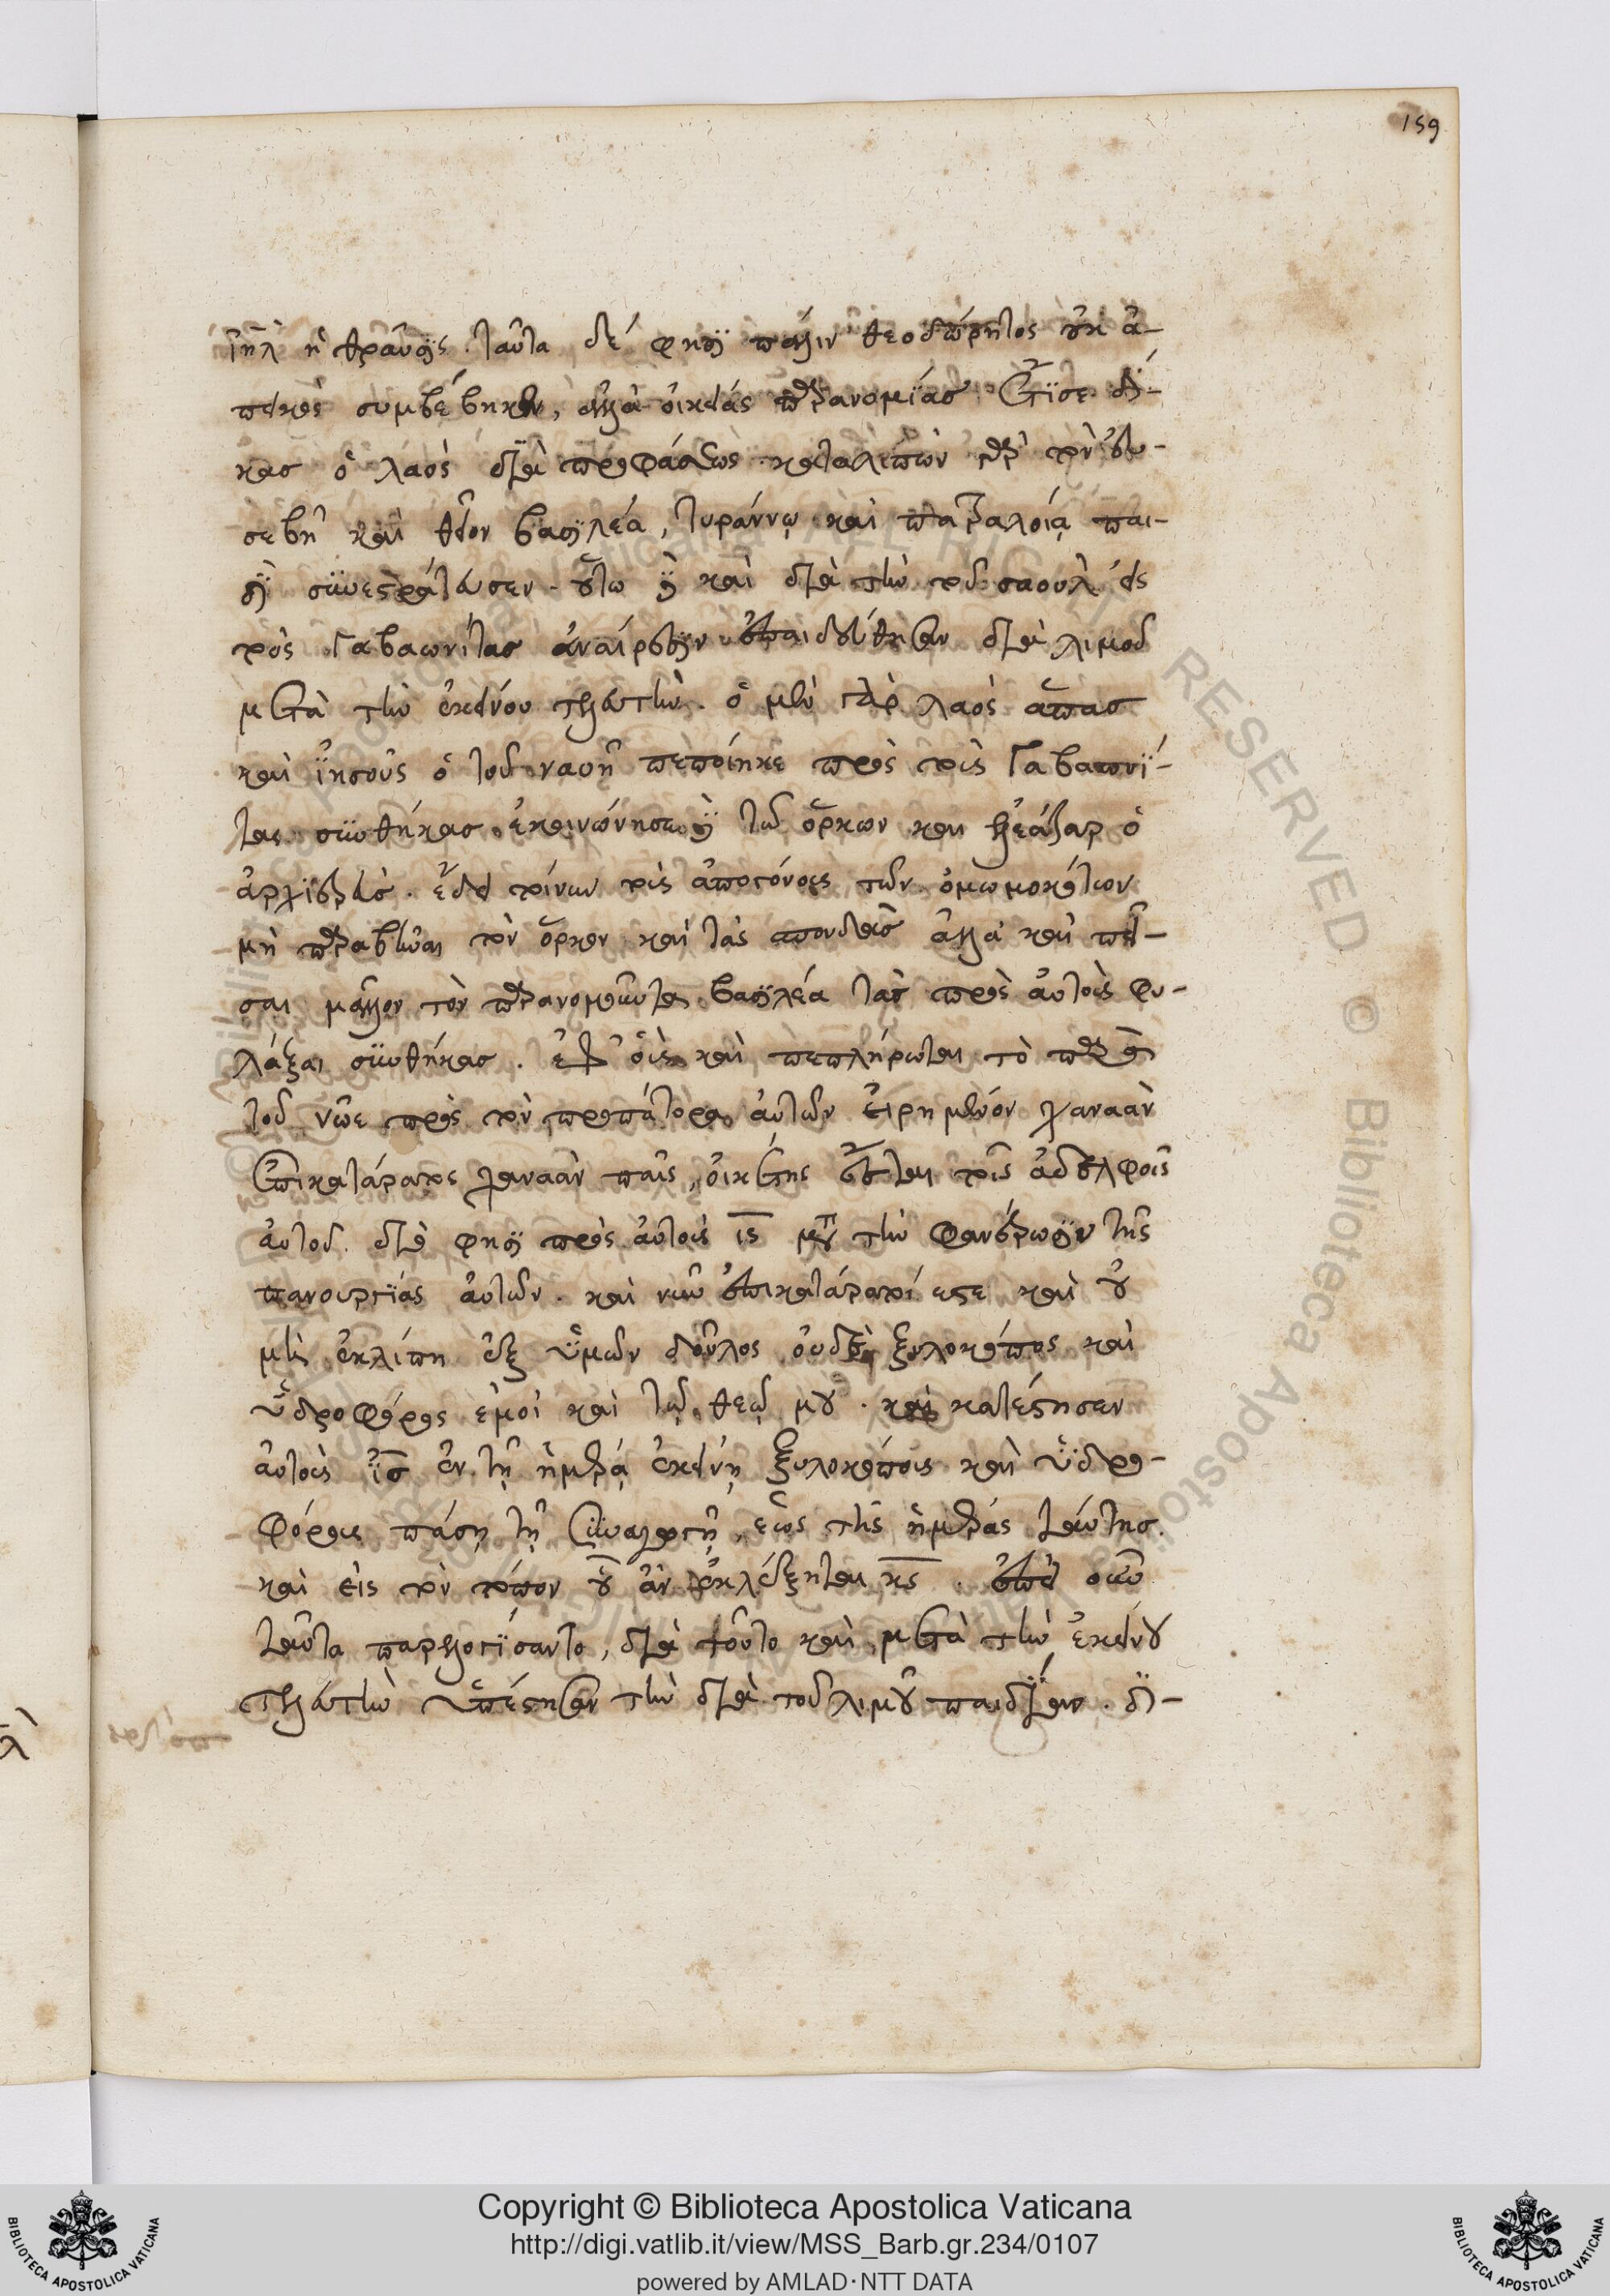 159
ἰηλ ἡ θραῦσις. ταῦτα δέ φησι πάλιν θεοδώρητος οὐκ ἀ-
πεικὸς συμβέβηκεν, ἀλλὰ οἰκείας παρανομίας ἔτισε δί-
κας ὁ λαὸς διὰ προφάσεως καταλιπὼν τὸν εὐ-
σεβῆ καὶ θεῖον βασιλέα, τυράννῳ καὶ πατραλοίᾳ παι-
δὶ συνεστράτευσεν. οὕτω καὶ διὰ τὴν τοῦ σαοὺλ εἰς
τοὺς Γαβαωνίτας ἀναίρεσιν ἐπαιδεύθησαν διὰ λιμοῦ
μετὰ τὴν ἐκείνου τελευτήν. ὁ μὲν γὰρ λαὸς ἅπας
καὶ ἰησοῦς ὁ τοῦ ναυῆ πεποίηκε πρὸς τοὺς Γαβαωνί-
τας συνθήκας. ἐκοινώνησε τῶν ὅρκων καὶ ἐλεάζαρ ὁ
ἀρχιερεύς. ἔδει τοίνυν τοὺς ἀπογόνους τῶν ὀμωμοκότων
μὴ παραβῆναι τὸν ὅρκον καὶ τὰς σπονδὰς ἀλλὰ καὶ πεῖ-
σαι μᾶλλον τὸν παρανομοῦντα βασιλέα τὰς πρὸς αὐτοὺς φυ-
λάξαι συνθήκας. ἐφ' οἷς καὶ πεπλήρωται τὸ παρὰ
τοῦ νῶε πρὸς τὸν προπάτορα αὐτῶν εἰρημένον χαναὰν
ἐπικατάρατος χαναὰν παῖς, οἰκέτης ἔσται τοῖς ἀδελφοῖς
αὐτοῦ. διὸ φησὶ πρὸς αὐτοὺς ις μετὰ τὴν φανέρωσιν τῆς
πανουργίας αὐτῶν. καὶ νῦν ἐπικατάρατοί εστε καὶ οὐ
μὴ ἐκλίπῃ ἐξ ὑμῶν δοῦλος οὐδὲ ξυλοκόπος καὶ
ὑδροφόρος ἐμοὶ καὶ τῷ θεῷ μου. καὶ κατέστησεν
αὐτοὺς ις ἐν τῇ ἡμέρᾳ ἐκείνῃ ξυλοκόπους καὶ ὑδρο-
φόρους πάσῃ τῇ συναγωγῇ, ἕως τῆς ἡμέρας ταύτης.
καὶ εἰς τὸν τόπον οὗ ἂν ἐκλέξηται κς. ἐπεὶ οὖν
ταῦτα παρελογίσαντο, διὰ τοῦτο καὶ μετὰ τὴν ἐκείνου
τελευτὴν ὑπέστησαν τὴν διὰ τοῦ λιμοῦ παιδείαν. δι-
RESERVED © Biblioteca Apostolica Vaticana
Copyright © Biblioteca Apostolica Vaticana
http://digi.vatlib.it/view/MSS_Barb.gr.234/0107
powered by AMLAD·NTT DATA
BIBLIOTECA APOSTOLICA VATICANA
BIBLIOTECA APOSTOLICA VATICANA